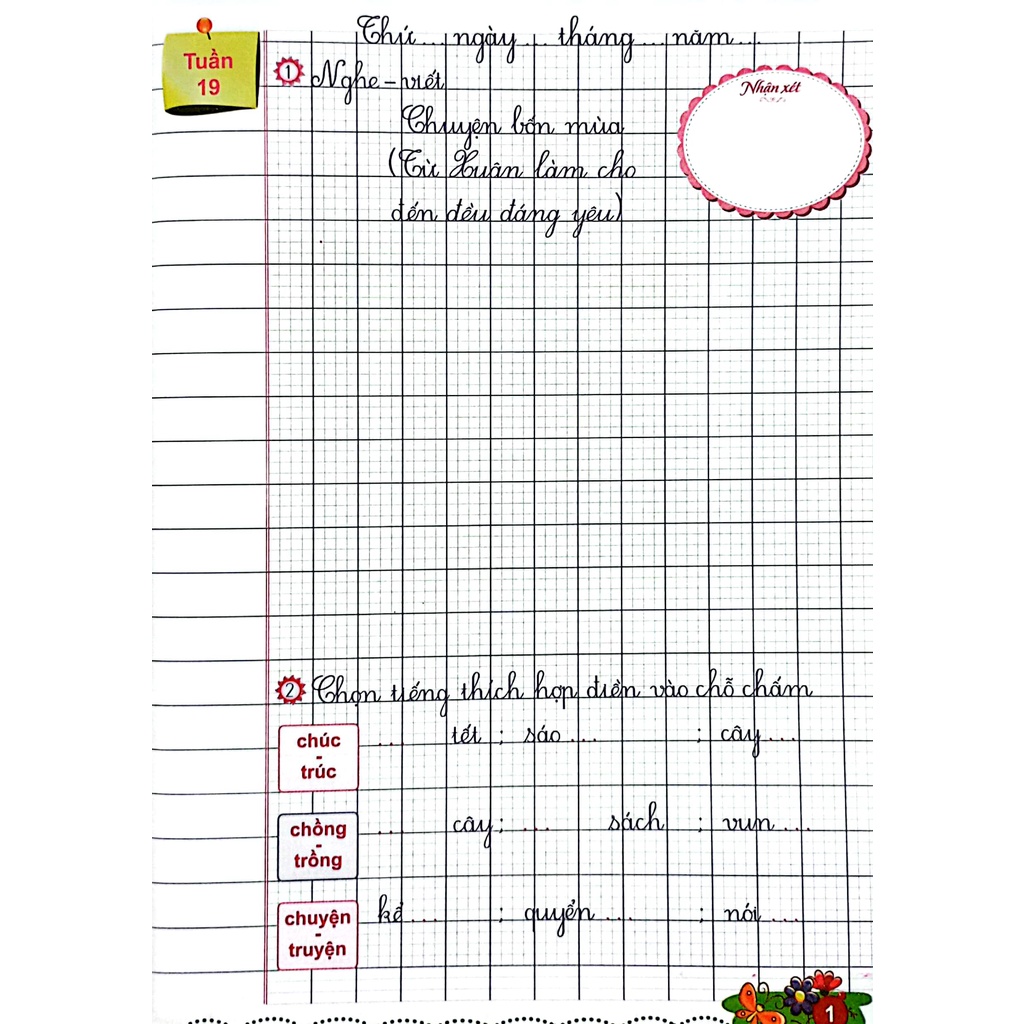 Thứ... ngày... tháng... năm...
Tuần
19
1 Nghe - viết
Nhận xét
Chuyện bốn mùa
(Từ Xuân làm cho
đến đều đáng yêu)
2 Chọn tiếng thích hợp điền vào chỗ chấm
chúc - trúc
... tết ; sáo ... ; cây ...
chồng - trồng
... cây ; ... sách ; vun ...
chuyện - truyện
kể ... ; quyển ... ; nói ...
1